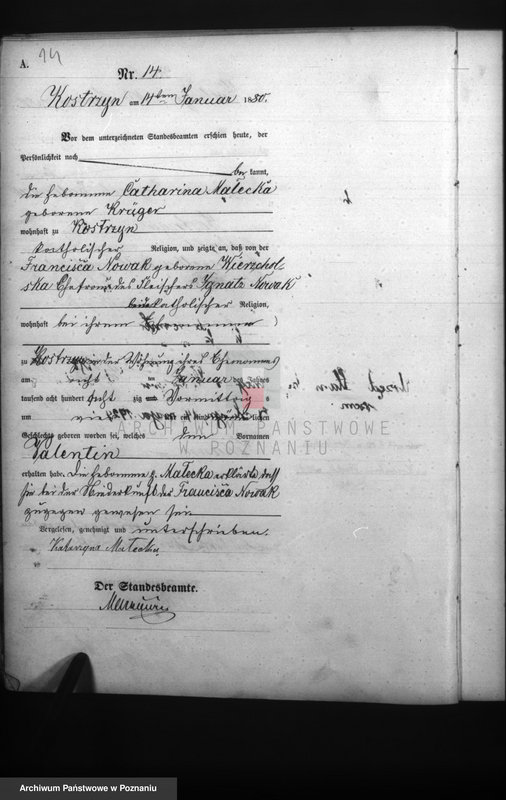 A.
14
Nr. 14.
Kostrzyn am 14ten Januar 1880.
Vor dem unterzeichneten Standesbeamten erschien heute, der
Persönlichkeit nach
be kannt,
die Hebamme Catharina Małecka
geborene Krüger
wohnhaft zu Kostrzyn
katholischer Religion, und zeigte an, daß von der
Francisca Nowak geborene Wierzchol-
ska Ehefrau des Fleischers Ignatz Nowak
katholischer Religion,
wohnhaft bei ihrem Ehemanne
zu Kostrzyn in der Wohnung ihres Ehemannes
am Januar des Jahres
tausend acht hundert acht zig Vormittag s
um vier ein Kind lichen
Geschlechts geboren worden sei, welches den Vornamen
Valentin
erhalten habe. Die Hebamme p. Małecka erklärte, daß
sie bei der Niederkunft der Francisca Nowak
zugegen gewesen sei
Vorgelesen, genehmigt und unterschrieben.
Katarzyna Małecka
Der Standesbeamte.
ARCHIWUM PAŃSTWOWE
W POZNANIU
Archiwum Państwowe w Poznaniu